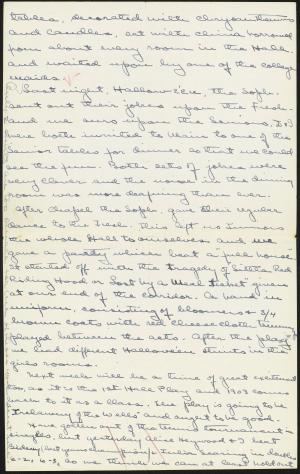 tables, decorated with chrysanthemums
and candles, set with china borrowed
from about every room in the Hall
and waited upon by one of the college
maids.
Last night, Hallowe'en, the Soph.
sent out their jokes upon the Fresh.
and we ours upon the Seniors.
were both invited to Main to one of the
Senior tables for dinner so that we could
see the fun. Both sets of jokes were
very clever and the noise in the dining
room was more deafening than ever.
After chapel the Soph. give their regular
dance to the Fresh. This left us Juniors
the whole Hall to ourselves and we
gave a party which beat a full house.
It started off with the tragedy of Little Red
Riding Hood or Lost by a Meal Ticket given
at our end of the corridor. A band in
uniform, consisting of bloomers & 3/4
brown coats with red cheese cloth
played between the acts. After the play
we had different Hallowe'en stunts in the
girls rooms.
Next week will be a time of great excitement
too, as it is the 1st Hall Play and 1903 comes
back to it as a class. The play is going to be
"Trelawney of the Wells" and ought to be good.
Have gotten out of the tennis tournament in
singles, but yesterday Heywood & I beat
in doubles
6-2, 6-3, so we think we can at least hold our